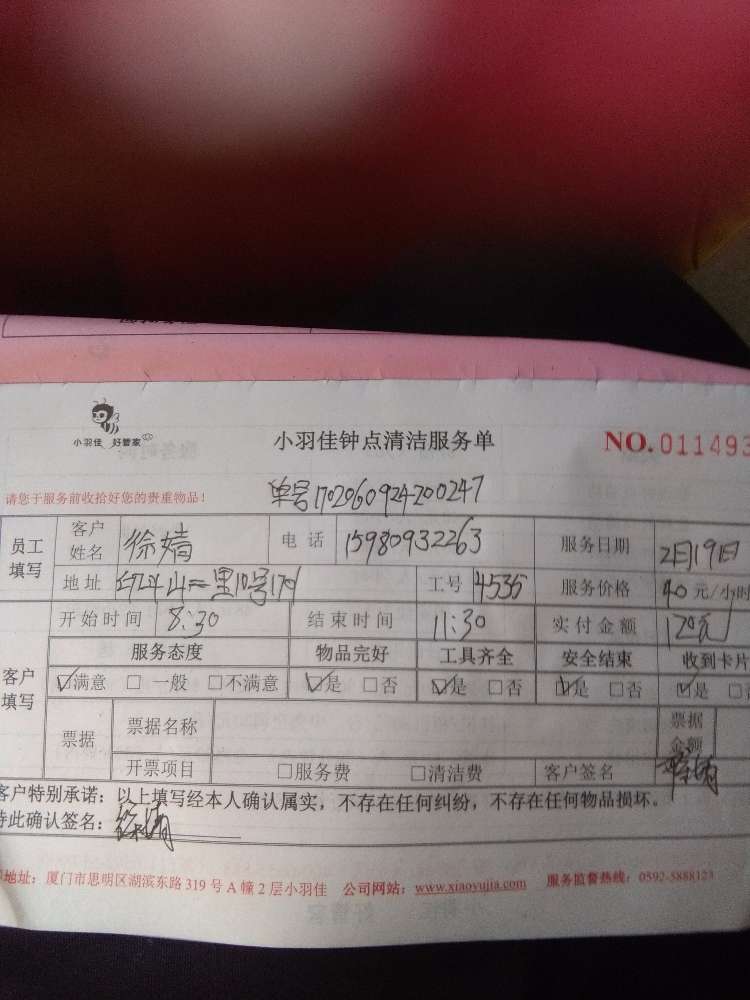 小羽佳 好管家
小羽佳钟点清洁服务单
NO.011493
请您于服务前收拾好您的贵重物品！
单号1702060924200247
员工填写 客户姓名 徐婧 电话 15980932263 服务日期 2月19日
地址 二里10号170 工号 4535 服务价格 40元/小时
客户填写 开始时间 8:30 结束时间 11:30 实付金额 120元
服务态度 物品完好 工具齐全 安全结束 收到卡片
☑满意 □一般 □不满意 ☑是 □否 ☑是 □否 ☑是 □否 ☑是
票据 票据名称 票据金额
开票项目 □服务费 □清洁费 客户签名
客户特别承诺：以上填写经本人确认属实，不存在任何纠纷，不存在任何物品损坏。
特此确认签名：徐婧
地址：厦门市思明区湖滨东路319号A幢2层小羽佳 公司网站：www.xiaoyujia.com 服务监督热线：0592-5888123